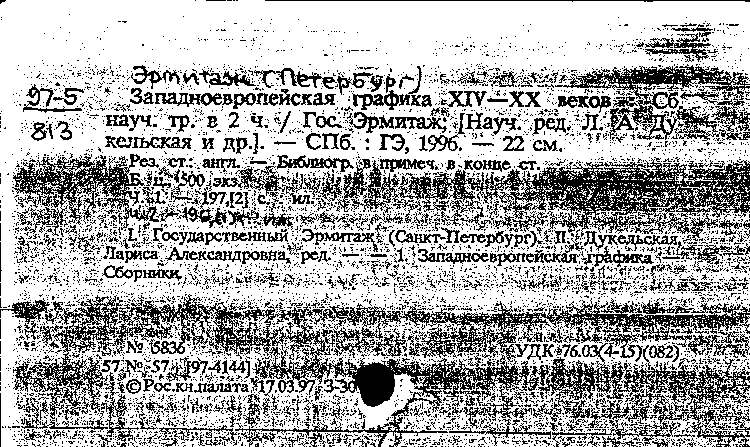 Эрмитаж (Петербург)
97-5
813
Западноевропейская графика XIV—XX веков : Сб.
науч. тр. в 2 ч. / Гос. Эрмитаж; [Науч. ред. Л. А. Ду-
кельская и др.]. — СПб. : ГЭ, 1996. — 22 см.
Рез. ст.: англ. — Библиогр. в примеч. в конце ст.
Б. ц. 500 экз.
Ч. 1. — 197,[2] с. ил.
Ч. 2. — 196,
I. Государственный Эрмитаж (Санкт-Петербург). II. Дукельская,
Лариса Александровна, ред. — — 1. Западноевропейская графика —
Сборники.
№ 6836
57 № 57 [97-4144]
УДК 76.03(4-15)(082)
© Рос. кн. палата 17.03.97 З-30